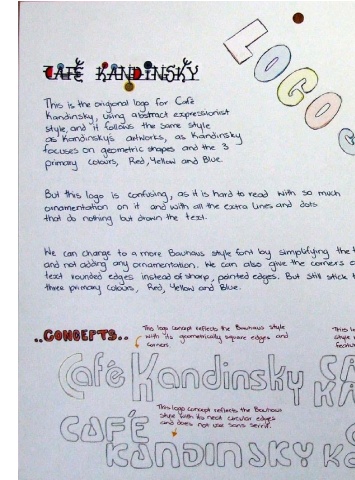 LOGO
CAFÉ KANDINSKY
This is the original logo for Café
Kandinsky, using abstract expressionist
style, and it follows the same style
as Kandinsky's artworks, as Kandinsky
focuses on geometric shapes and the 3
primary colours, Red, Yellow and Blue.
But this logo is confusing, as it is hard to read with so much
ornamentation on it and with all the extra lines and dots
that do nothing but drown the text.
We can change to a more Bauhaus style font by simplifying the
and not adding any ornamentation. We can also give the corners
text rounded edges instead of sharp, pointed edges. But still stick
three primary colours, Red, Yellow and Blue.
..CONCEPTS..
This logo concept reflects the Bauhaus style
with its geometrically square edges and
corners.
Café Kandinsky
This logo concept reflects the Bauhaus
style with its neat circular edges
and does not use sans serrif.
CAFÉ
KANDINSKY